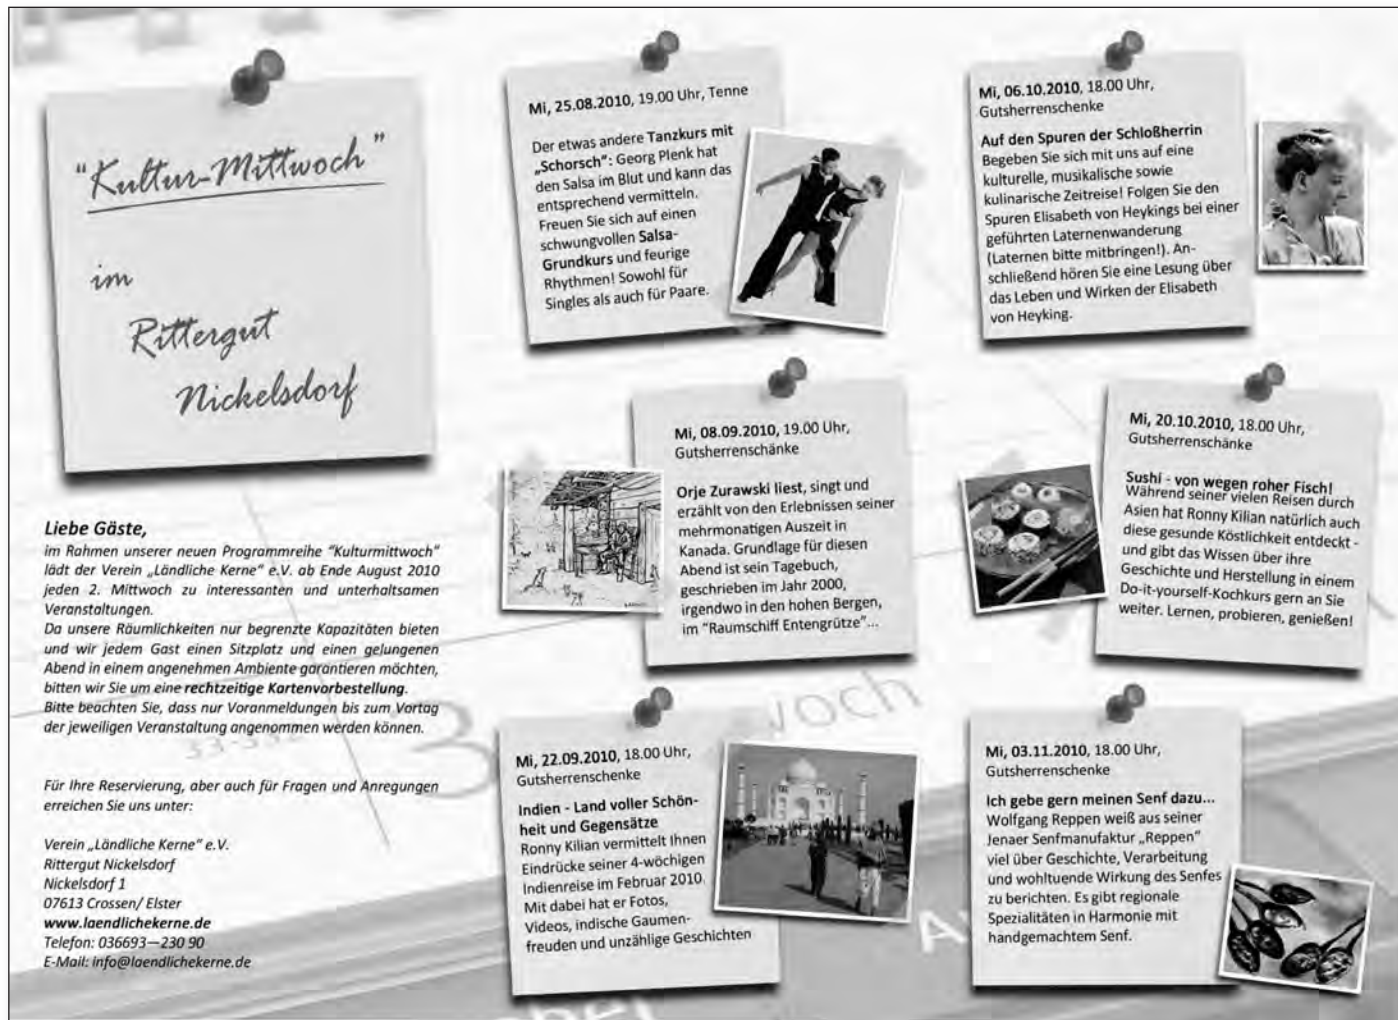 "Kultur-Mittwoch"
im
Rittergut
Nickelsdorf
Liebe Gäste,
im Rahmen unserer neuen Programmreihe "Kulturmittwoch"
lädt der Verein „Ländliche Kerne" e.V. ab Ende August 2010
jeden 2. Mittwoch zu interessanten und unterhaltsamen
Veranstaltungen.
Da unsere Räumlichkeiten nur begrenzte Kapazitäten bieten
und wir jedem Gast einen Sitzplatz und einen gelungenen
Abend in einem angenehmen Ambiente garantieren möchten,
bitten wir Sie um eine rechtzeitige Kartenvorbestellung.
Bitte beachten Sie, dass nur Voranmeldungen bis zum Vortag
der jeweiligen Veranstaltung angenommen werden können.
Für Ihre Reservierung, aber auch für Fragen und Anregungen
erreichen Sie uns unter:
Verein „Ländliche Kerne" e.V.
Rittergut Nickelsdorf
Nickelsdorf 1
07613 Crossen/ Elster
www.laendlichekerne.de
Telefon: 036693—230 90
E-Mail: info@laendlichekerne.de
Mi, 25.08.2010, 19.00 Uhr, Tenne
Der etwas andere Tanzkurs mit
„Schorsch": Georg Plenk hat
den Salsa im Blut und kann das
entsprechend vermitteln.
Freuen Sie sich auf einen
schwungvollen Salsa-
Grundkurs und feurige
Rhythmen! Sowohl für
Singles als auch für Paare.
Mi, 08.09.2010, 19.00 Uhr,
Gutsherrenschänke
Orje Zurawski liest, singt und
erzählt von den Erlebnissen seiner
mehrmonatigen Auszeit in
Kanada. Grundlage für diesen
Abend ist sein Tagebuch,
geschrieben im Jahr 2000,
irgendwo in den hohen Bergen,
im "Raumschiff Entengrütze"...
Mi, 22.09.2010, 18.00 Uhr,
Gutsherrenschenke
Indien - Land voller Schön-
heit und Gegensätze
Ronny Kilian vermittelt Ihnen
Eindrücke seiner 4-wöchigen
Indienreise im Februar 2010.
Mit dabei hat er Fotos,
Videos, indische Gaumen-
freuden und unzählige Geschichten
Mi, 06.10.2010, 18.00 Uhr,
Gutsherrenschenke
Auf den Spuren der Schloßherrin
Begeben Sie sich mit uns auf eine
kulturelle, musikalische sowie
kulinarische Zeitreise! Folgen Sie den
Spuren Elisabeth von Heykings bei einer
geführten Laternenwanderung
(Laternen bitte mitbringen!). An-
schließend hören Sie eine Lesung über
das Leben und Wirken der Elisabeth
von Heyking.
Mi, 20.10.2010, 18.00 Uhr,
Gutsherrenschänke
Sushi - von wegen roher Fisch!
Während seiner vielen Reisen durch
Asien hat Ronny Kilian natürlich auch
diese gesunde Köstlichkeit entdeckt -
und gibt das Wissen über ihre
Geschichte und Herstellung in einem
Do-it-yourself-Kochkurs gern an Sie
weiter. Lernen, probieren, genießen!
Mi, 03.11.2010, 18.00 Uhr,
Gutsherrenschenke
Ich gebe gern meinen Senf dazu...
Wolfgang Reppen weiß aus seiner
Jenaer Senfmanufaktur „Reppen"
viel über Geschichte, Verarbeitung
und wohltuende Wirkung des Senfes
zu berichten. Es gibt regionale
Spezialitäten in Harmonie mit
handgemachtem Senf.